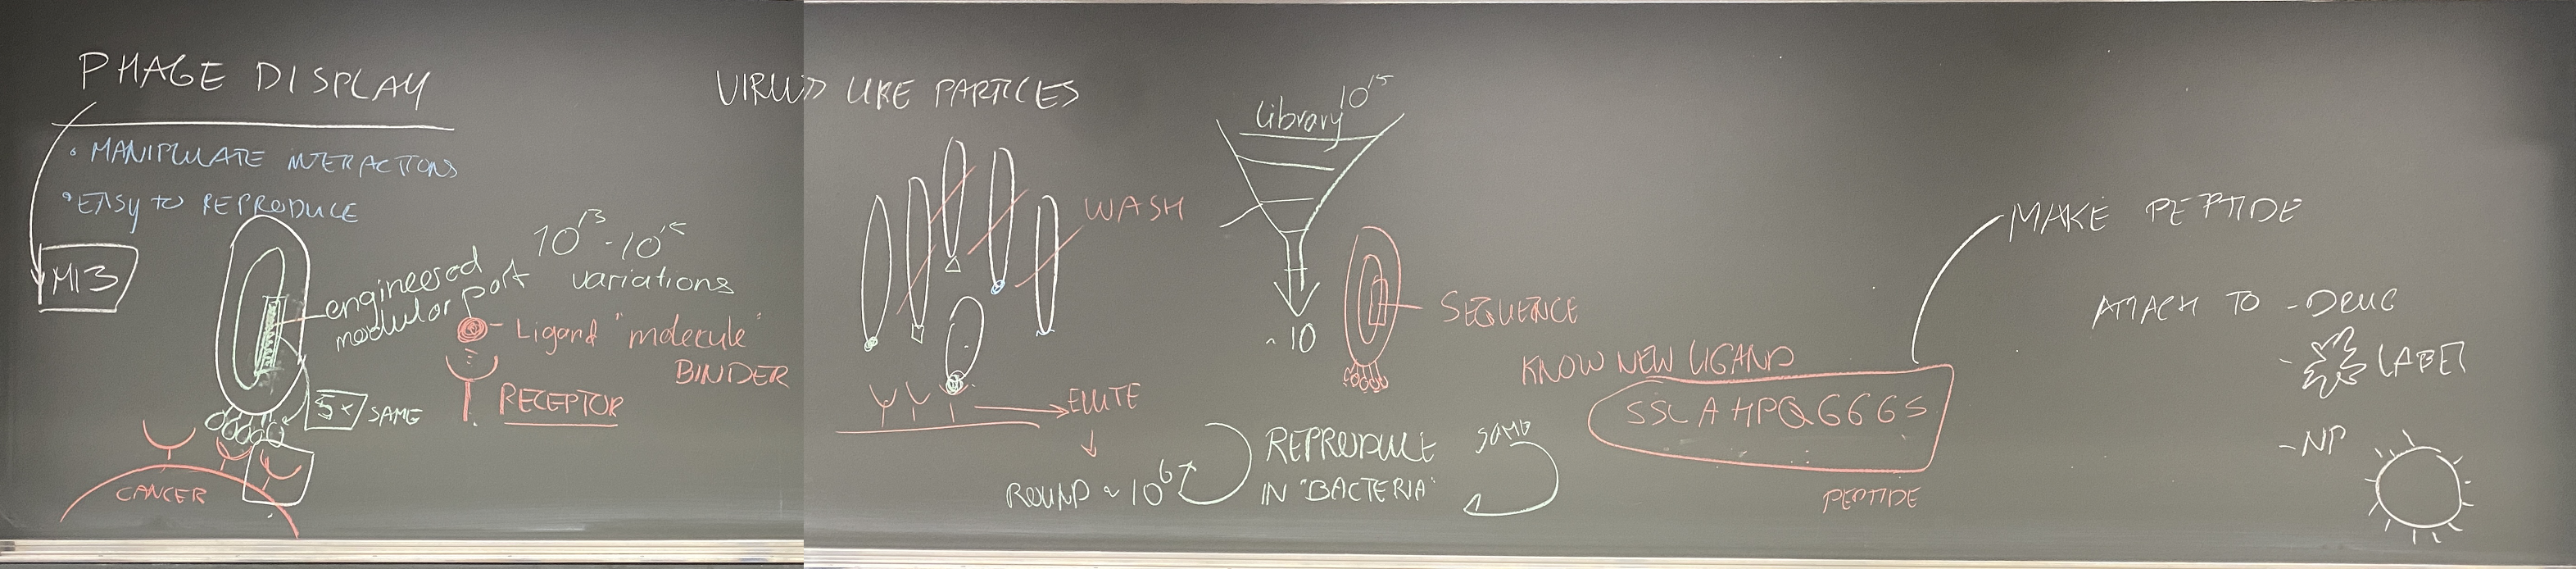 PHAGE DISPLAY
• MANIPULATE INTERACTIONS
• EASY TO REPRODUCE
M13
engineered
modular part
10^13 - 10^15
variations
Ligand "molecule"
BINDER
RECEPTOR
5x SAME
CANCER
VIRUS LIKE PARTICLES
WASH
ELUTE
ROUND ~ 10^6
REPRODUCE
IN "BACTERIA"
SAME
Library 10^15
~10
SEQUENCE
KNOW NEW LIGAND
SSLAHPQGGGS
PEPTIDE
MAKE PEPTIDE
ATTACH TO - DRUG
- LABEL
- NP